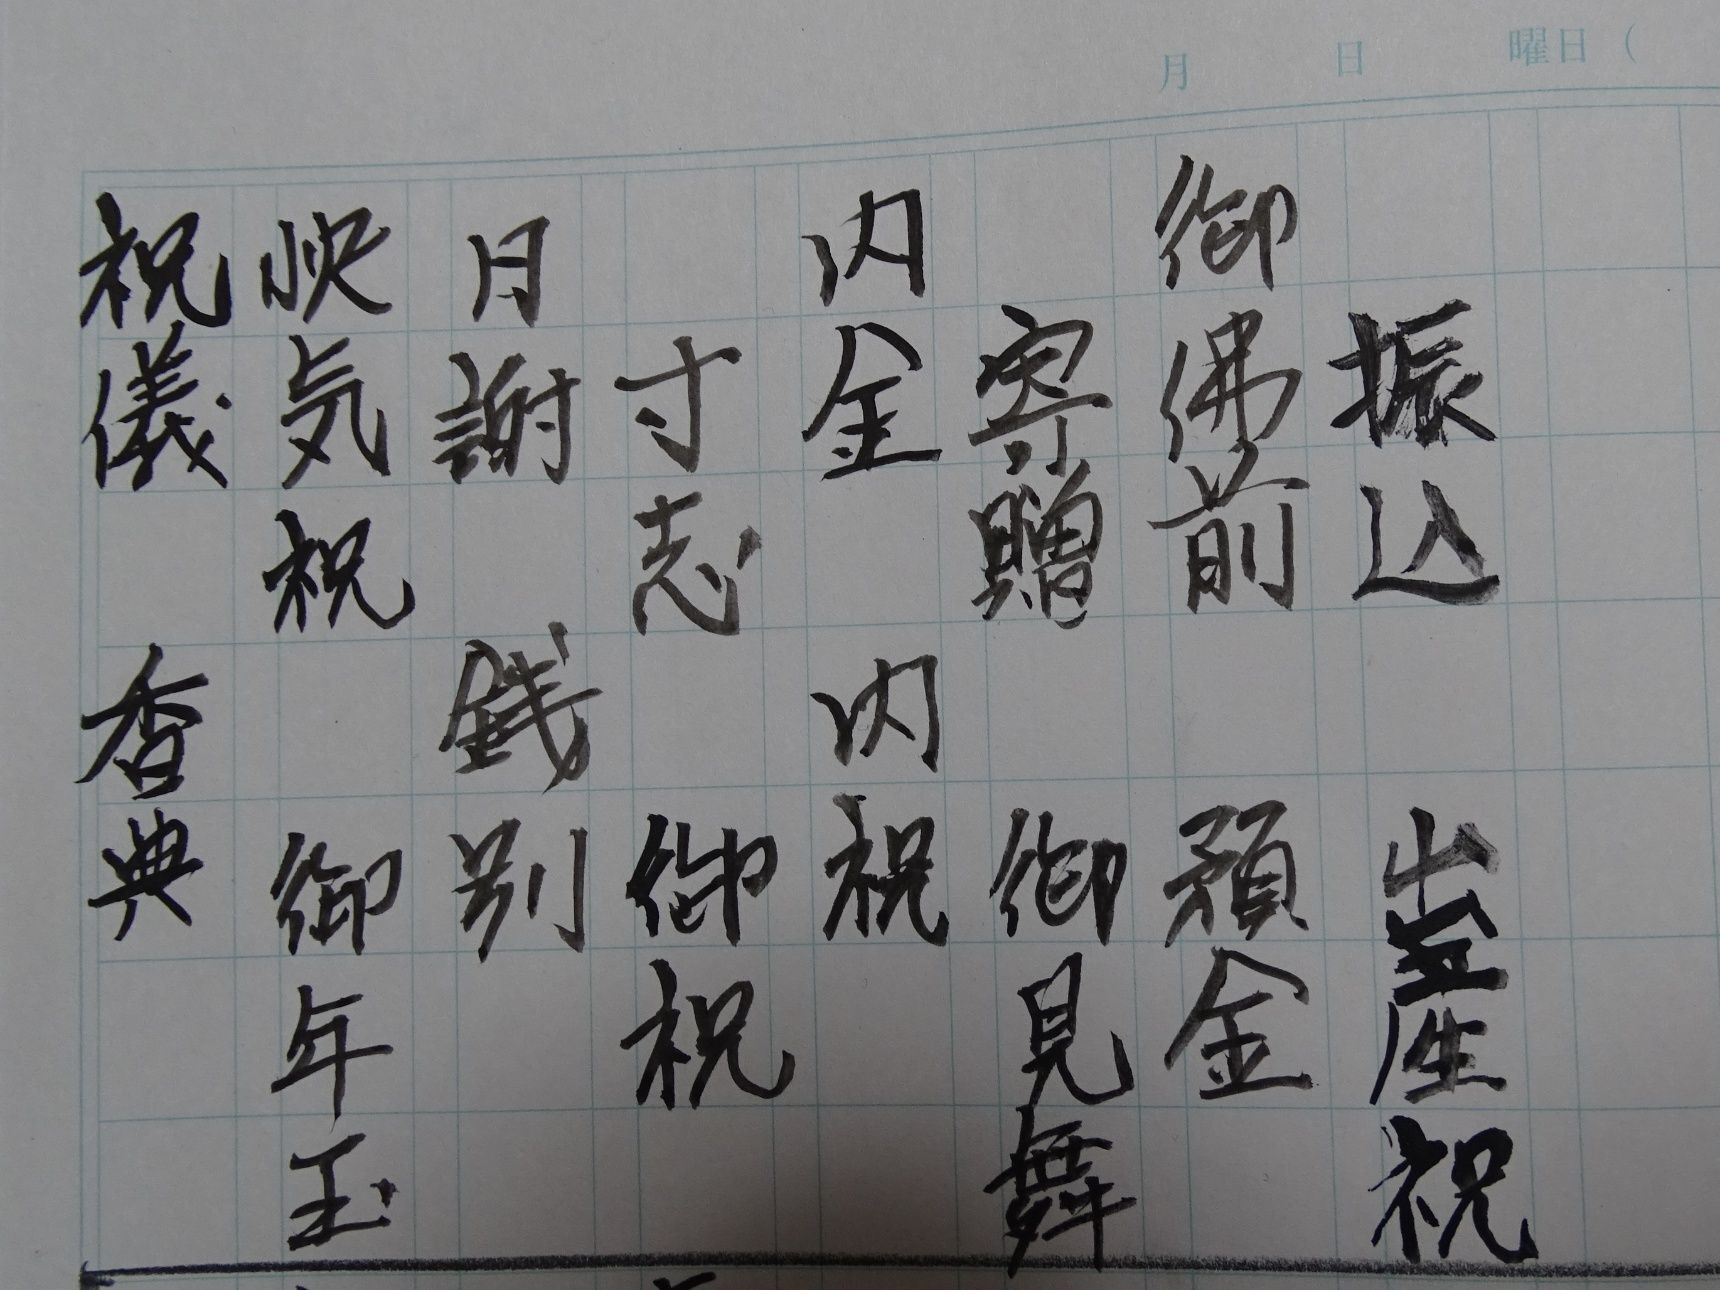 月 日 曜日（
振込 出産祝
御佛前 預金
寄贈 御見舞
内金 内祝
寸志 御祝
月謝 銭別
快気祝 御年玉
祝儀 香典